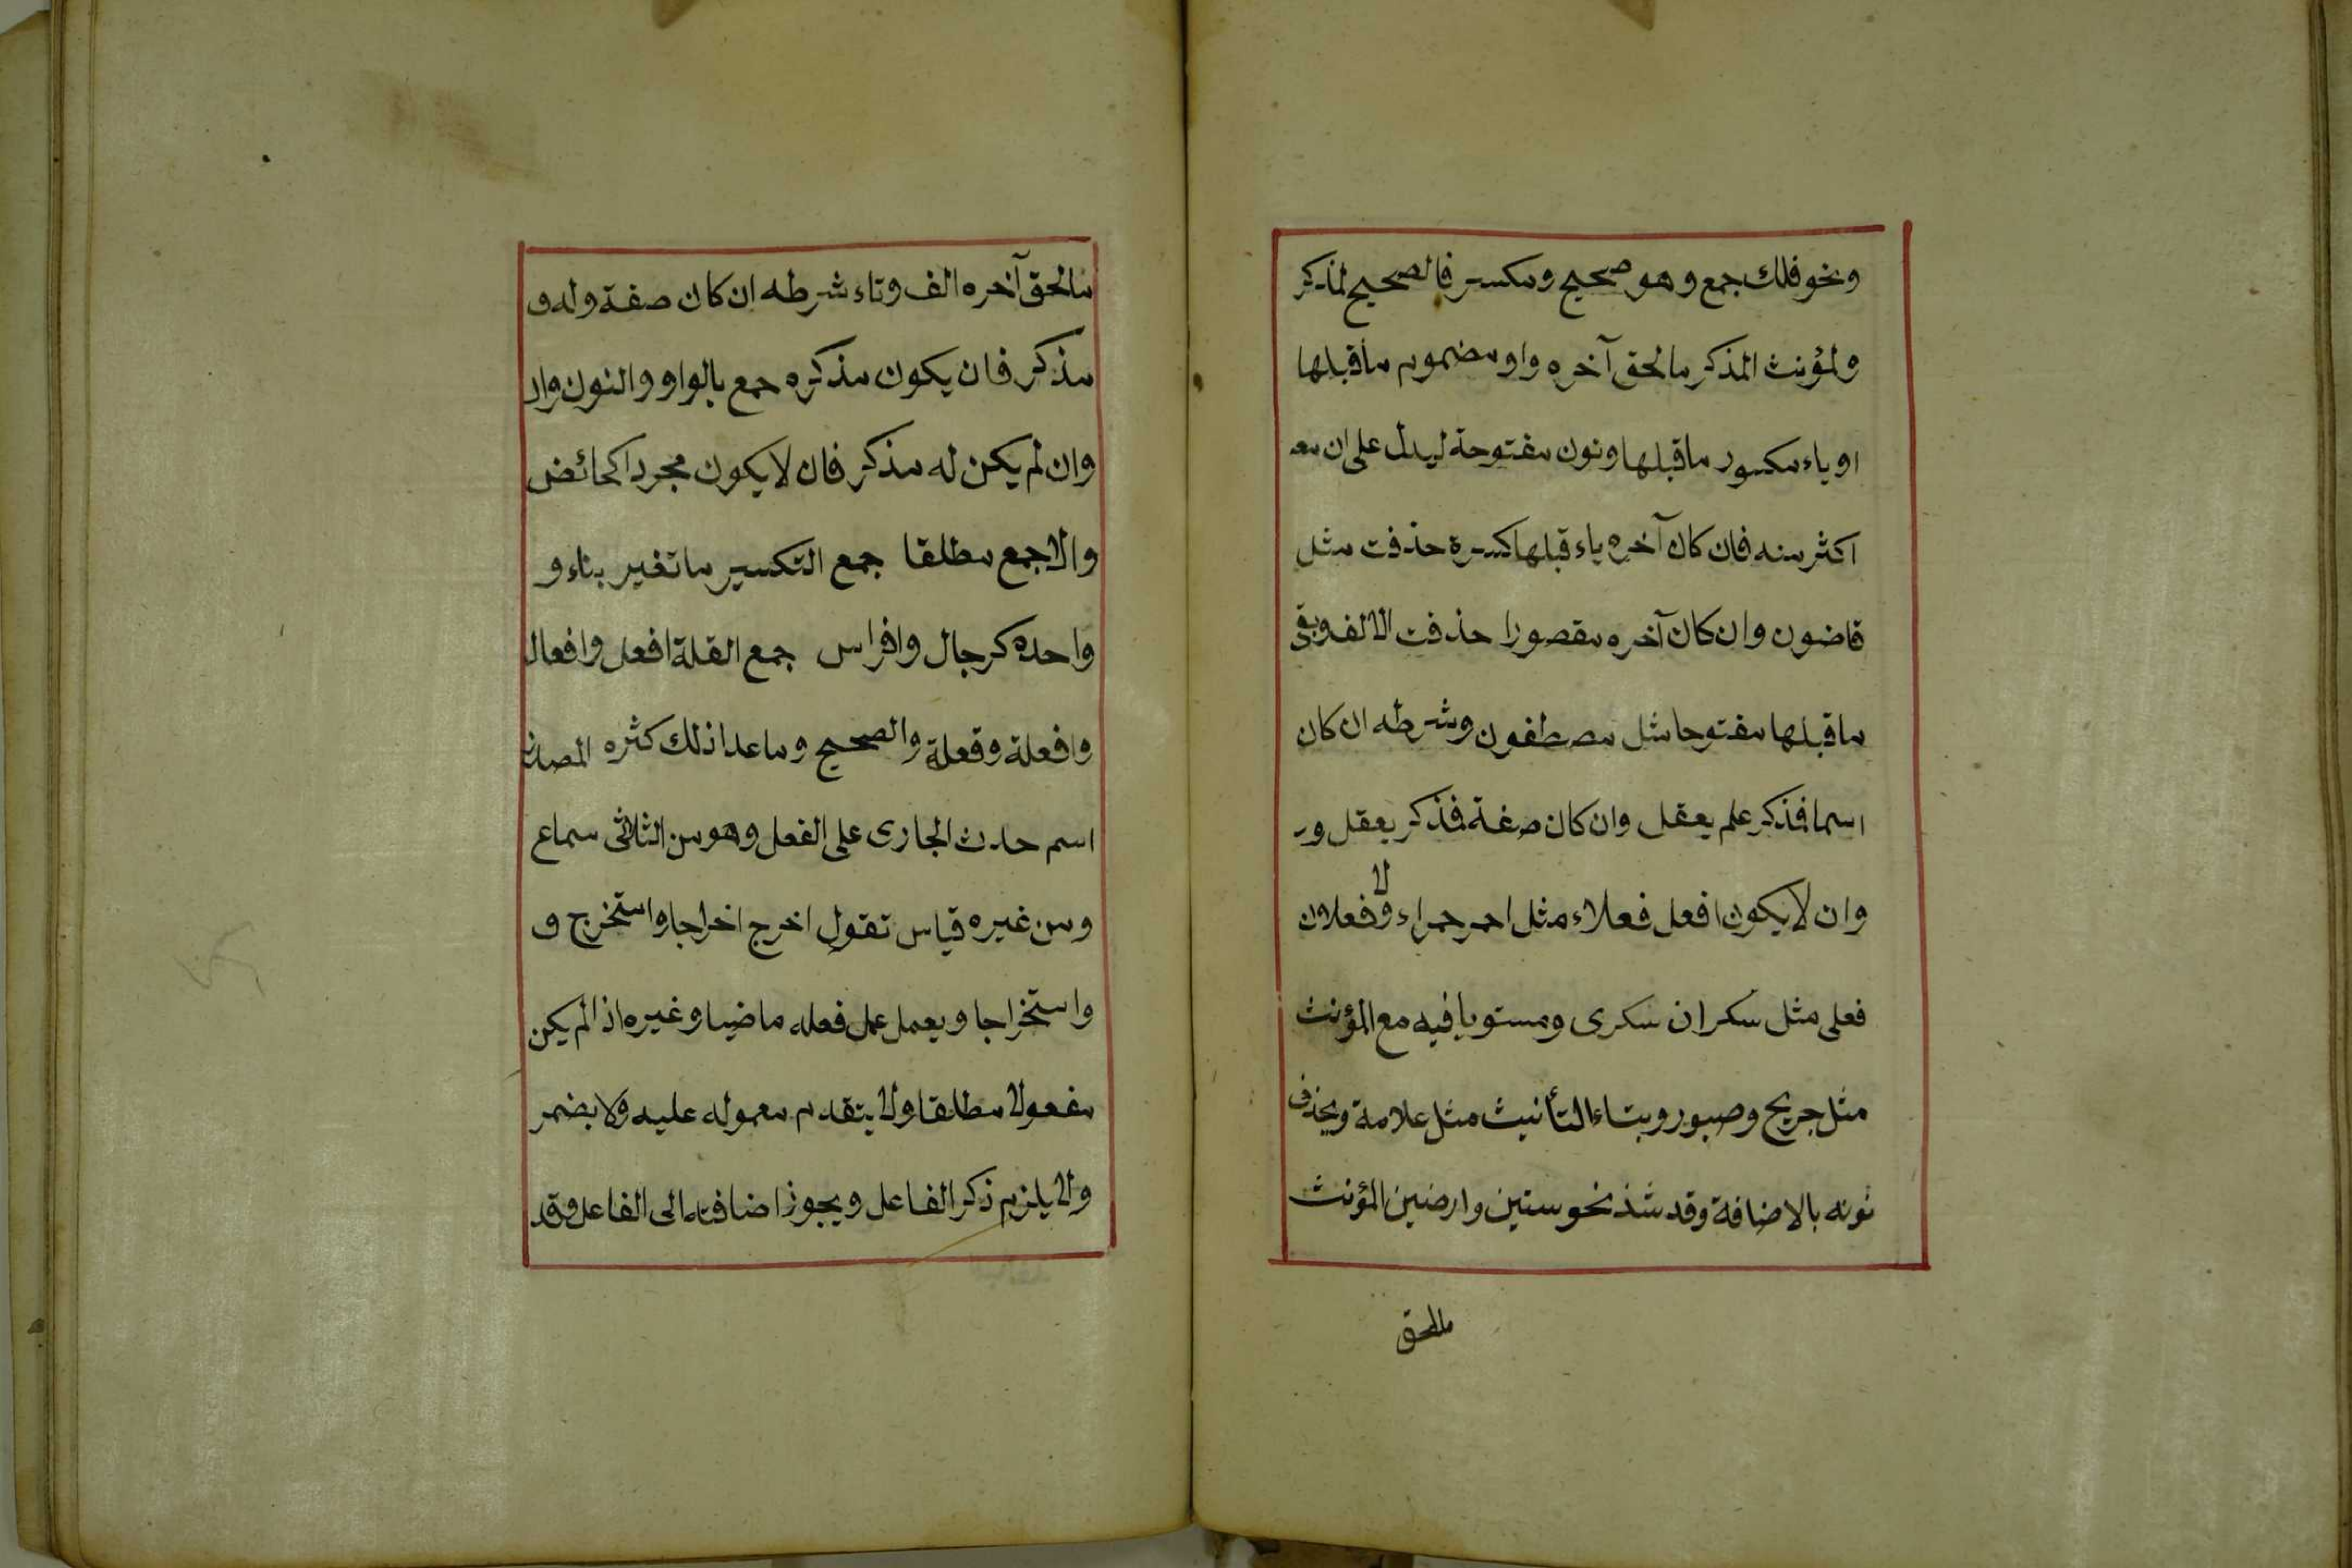 ونحو فلك جمع وهو صحيح ومكسر فالصحيح لمذكر
ولمؤنث المذكر مالحق آخره واو مضموم ماقبلها
او ياء مكسور ماقبلها ونون مفتوحة ليدل على ان معه
اكثر منه فان كان آخره ياء قبلها كسرة حذفت مثل
قاضون وان كان آخره مقصورا حذفت الالف وبقى
ماقبلها مفتوحا مثل مصطفون وشرطه ان كان
اسما فمذكر علم يعقل وان كان صفة فمذكر يعقل و
وان لا يكون افعل فعلاء مثل احمر حمراء ولا فعلان
فعلى مثل سكران سكرى ومستويا فيه مع المؤنث
مثل جريح وصبور وبتاء التأنيث مثل علامة ويحذف
نونه بالاضافة وقد شذ نحو سنين وارضين المؤنث
مالحق
مالحق آخره الف وتاء شرطه ان كان صفة وله و
مذكر فان يكون مذكره جمع بالواو والنون وان
وان لم يكن له مذكر فان لا يكون مجردا كحائض
والا جمع مطلقا جمع التكسير ما تغير بناء و
واحده كرجال وافراس جمع القلة افعل وافعال
وافعلة وفعلة والصحيح وماعدا ذلك كثره المصدر
اسم حدث الجارى على الفعل وهو من الثلاثى سماع
ومن غيره قياس تقول اخرج اخراجا واستخرج و
واستخراجا ويعمل عمل فعله ماضيا وغيره اذا لم يكن
مفعولا مطلقا ولا يتقدم معموله عليه ولا يضمر
ولا يلزم ذكر الفاعل ويجوز اضافته الى الفاعل وقد